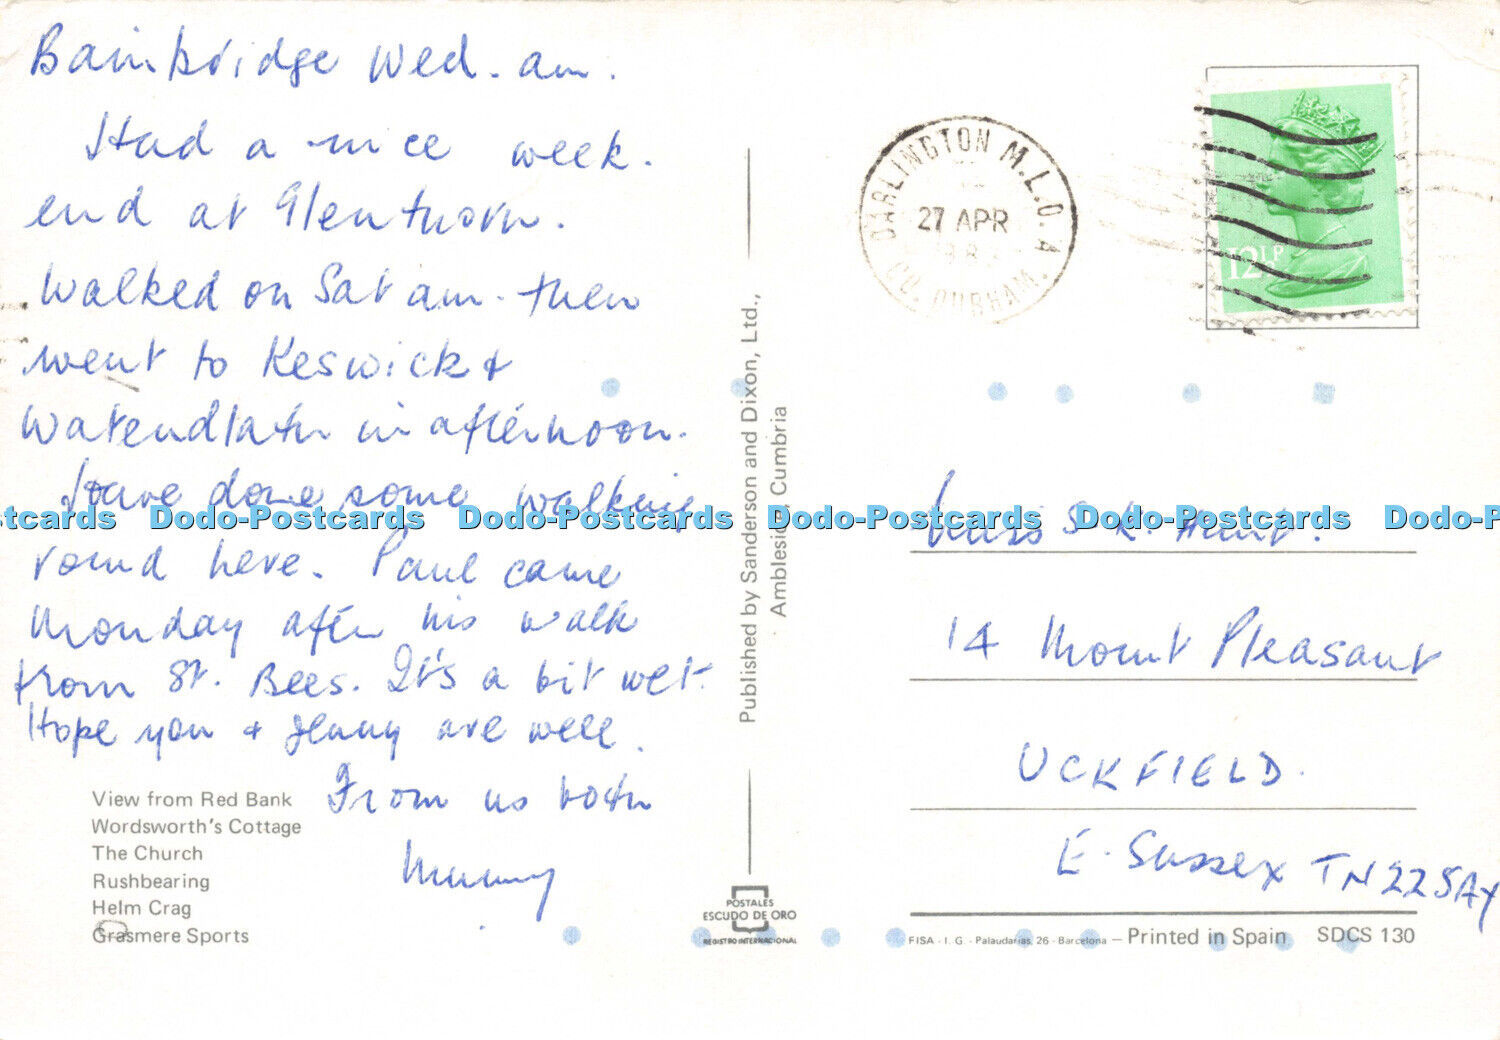 Bainbridge Wed. am.
Had a nice week.
end at Glenthorn.
Walked on Sat am. then
went to Keswick &
Watendlath in afternoon.
Have done some walking
round here. Paul came
Monday after his walk
from St. Bees. It's a bit wet.
Hope you & Jenny are well.
From us both
Mummy
View from Red Bank
Wordsworth's Cottage
The Church
Rushbearing
Helm Crag
Grasmere Sports
Published by Sanderson and Dixon, Ltd.,
Ambleside, Cumbria
POSTALES
ESCUDO DE ORO
REGISTRO INTERNACIONAL
DARLINGTON M.L.O. A
27 APR
CO. DURHAM.
12½P
Miss S K. Hunt.
14 Mount Pleasant
UCKFIELD.
E. Sussex TN22 5AY
FISA - I. G. - Palaudarias, 26 - Barcelona — Printed in Spain SDCS 130
stcards Dodo-Postcards Dodo-Postcards Dodo-Postcards Dodo-Postcards Dodo-P